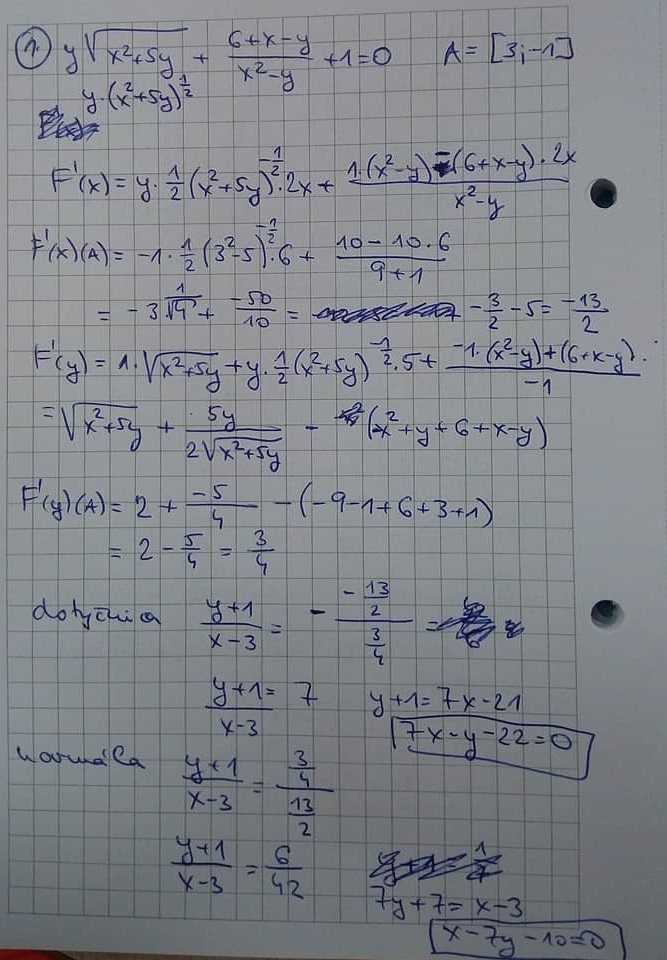 1. y√(x²+5y) + (6+x-y)/(x²-y) +1=0 A = [3;-1]
y·(x²+5y)^(1/2)
F'(x) = y·1/2(x²+5y)^(-1/2)·2x + (1·(x²-y)-(6+x-y)·2x)/(x²-y)
F'(x)(A) = -1·1/2(3²-5)^(-1/2)·6 + (10-10·6)/(9+1)
= -3·1/√4 + (-50)/10 = -3/2 -5 = -13/2
F'(y) = 1·√(x²+5y) + y·1/2(x²+5y)^(-1/2)·5 + (-1·(x²-y)+(6+x-y)·)/(-1)
= √(x²+5y) + 5y/(2√(x²+5y)) - (-x²+y+6+x-y)
F'(y)(A) = 2 + (-5)/4 - (-9-1+6+3+1)
= 2 - 5/4 = 3/4
dotyčnica (y+1)/(x-3) = - (-13/2)/(3/4) =
(y+1)/(x-3) = 7 y+1=7x-21
7x-y-22=0
normála (y+1)/(x-3) = (3/4)/(13/2)
(y+1)/(x-3) = 6/42
7y+7= x-3
x-7y-10=0